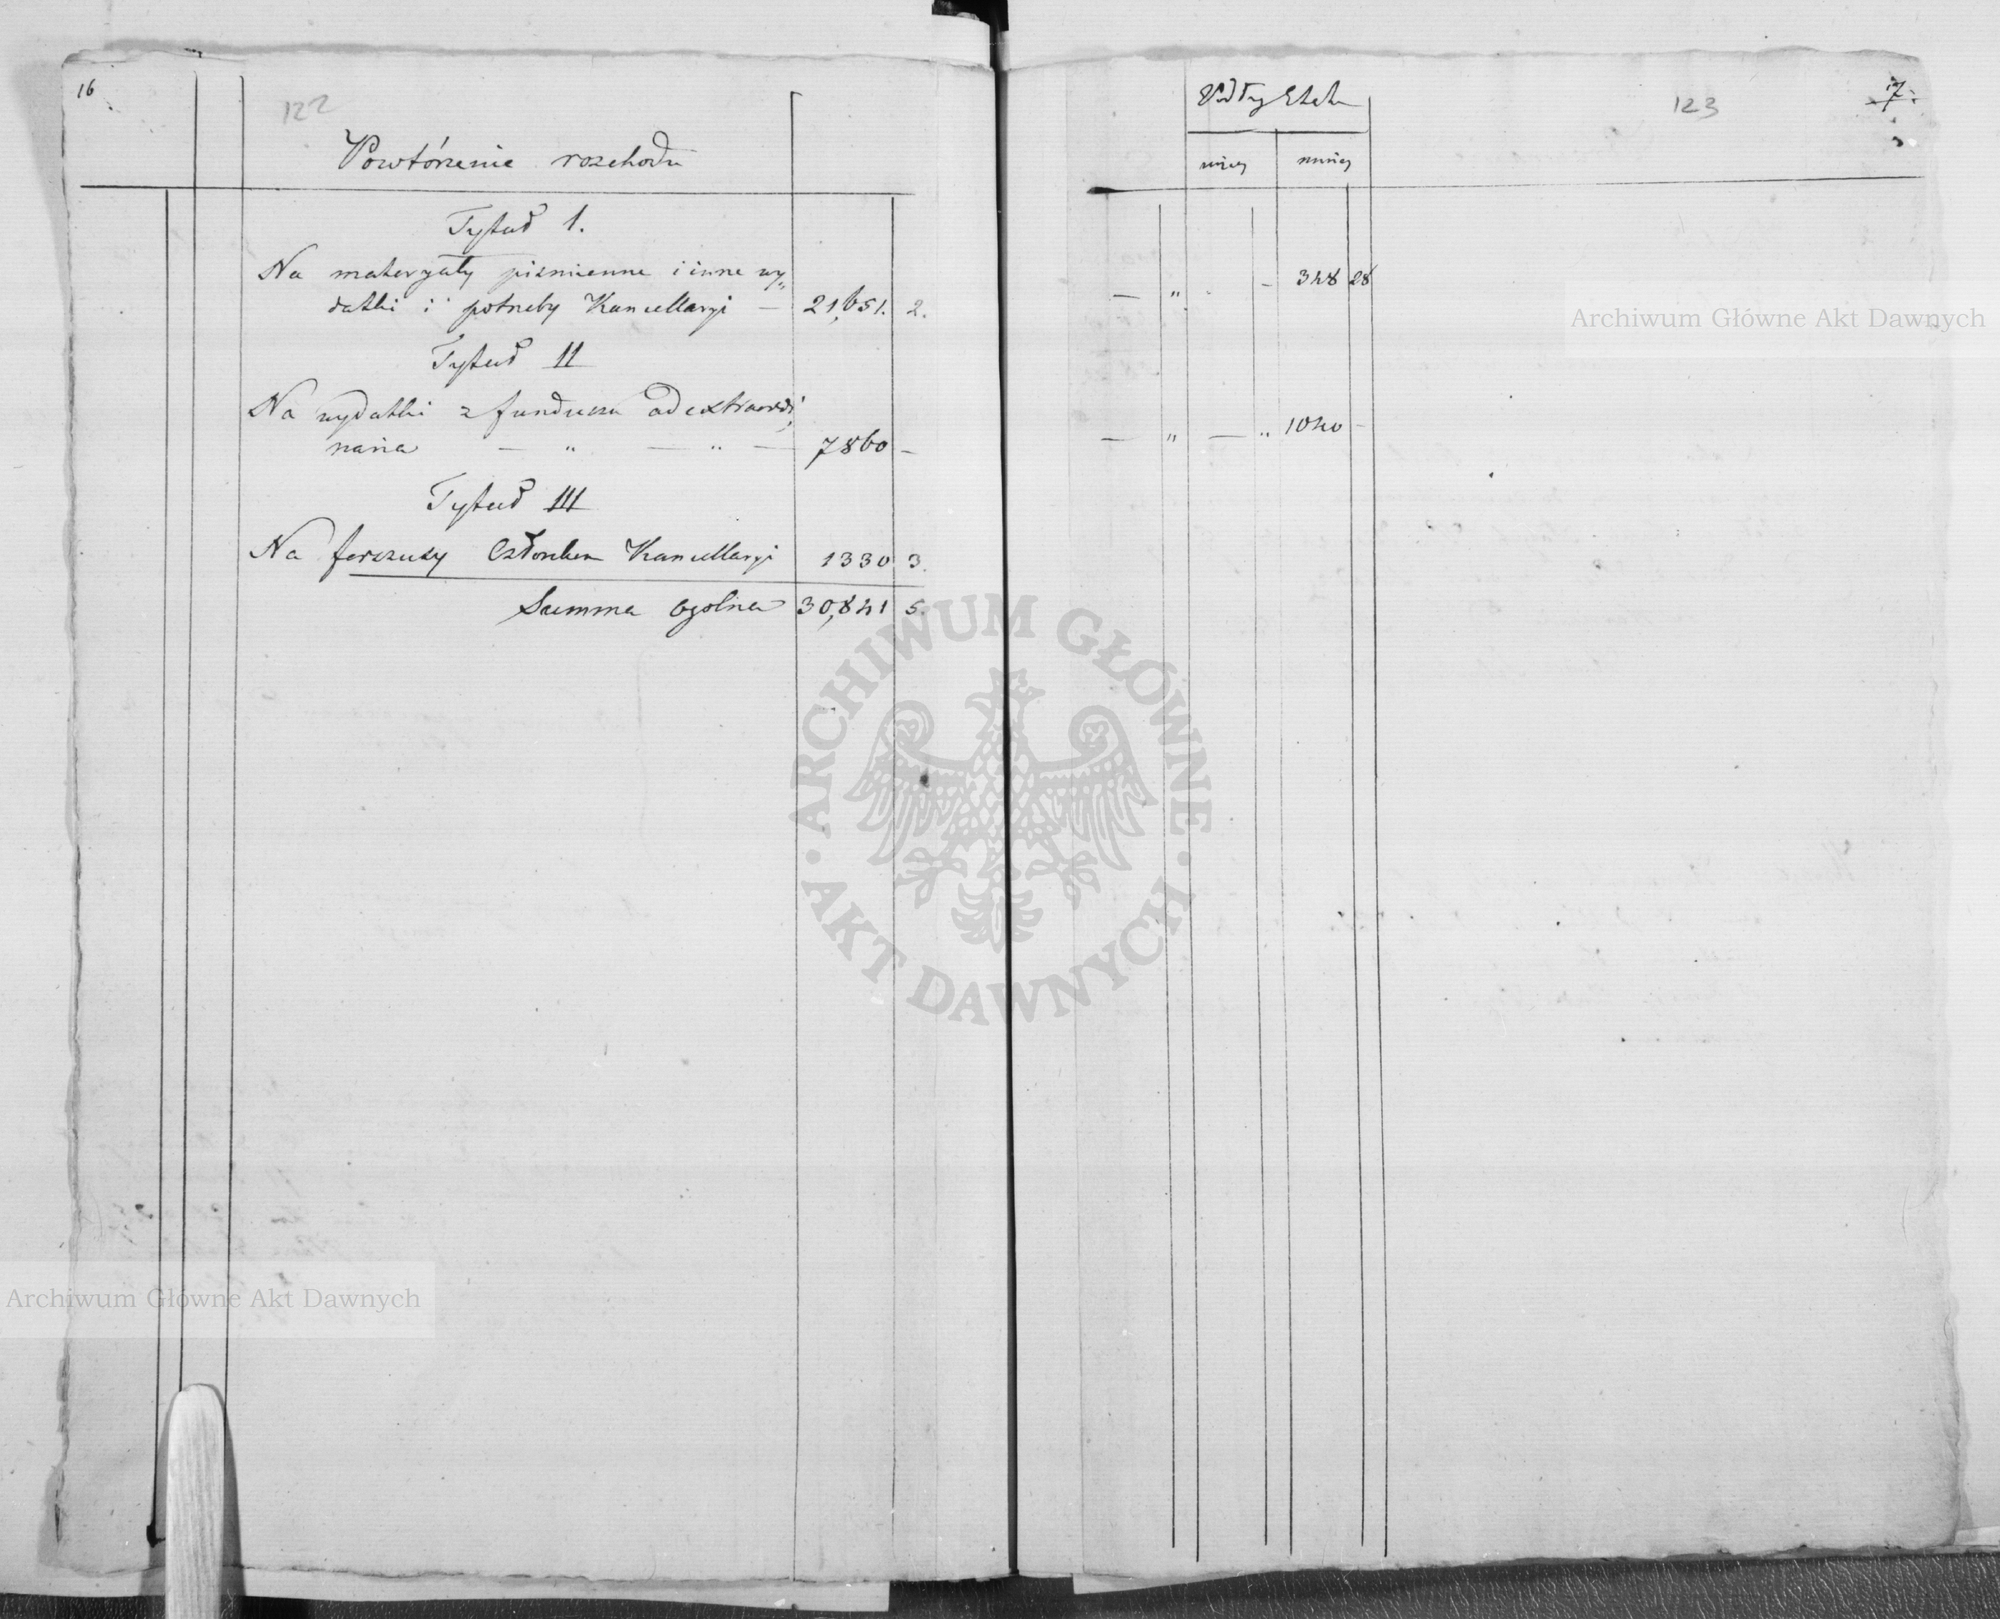 16
122
Powtórzenie rozchodu
Tytuł I.
Na materyały piśmienne i inne wy„
datki i potrzeby Kancellaryi — 21,651. 2.
Tytuł II
Na wydatki z funduszu ad extraordi„
naria — „ — „ — 7860 —
Tytuł III
Na forszusy Członkom Kancellaryi 1330 3.
Summa ogólna 30,841 5.
Podług Etatu
123
17
więcey mniey
— „ - 348 28
— „ — „ 1040 —
Archiwum Główne Akt Dawnych
ARCHIWUM GŁÓWNE
AKT DAWNYCH
Archiwum Główne Akt Dawnych